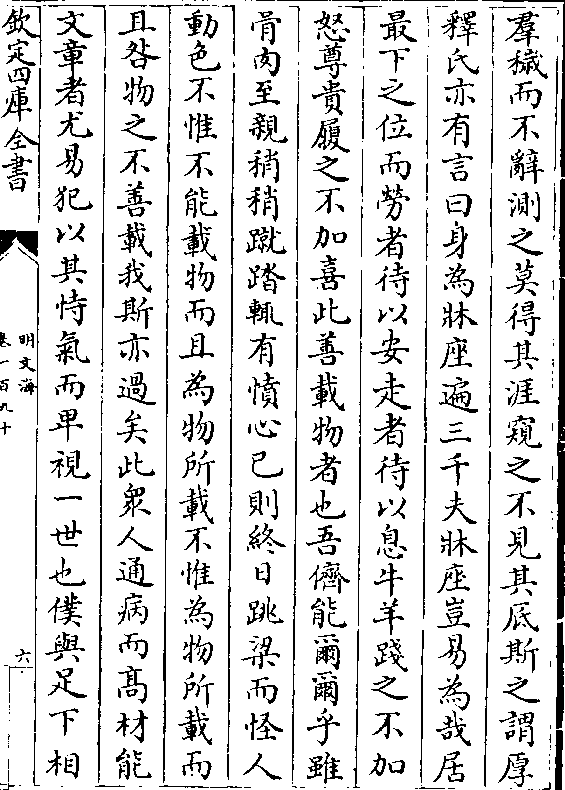 羣穢而不辭測之莫得其涯窺之不見其底斯之謂厚
釋氏亦有言曰身為牀座遍三千夫牀座豈易為哉居
最下之位而勞者待以安走者待以息牛羊踐之不加
怒尊貴履之不加喜此善載物者也吾儕能爾爾乎雖
骨肉至親稍稍蹴踏輒有憤心已則終日跳梁而怪人
動色不惟不能載物而且為物所載不惟為物所載而
且咎物之不善載我斯亦過矣此衆人通病而髙材能
文章者尤易犯以其恃氣而卑視一世也僕與足下相
欽定四庫全書
明文海
卷一百九十
六